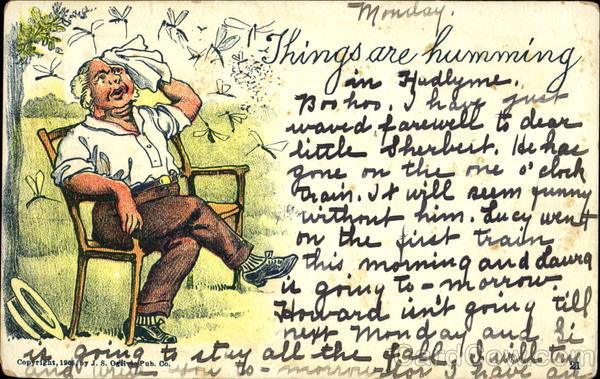 Monday.
Things are humming
in Hadlyme.
Boo hoo. I have just
waved farewell to dear
little Sherbert. He has
gone on the one o'clock
train. It will seem funny
without him. Lucy went
on the first train
this morning and Laura
is going to-morrow.
Howard isn't going till
next Monday and
is going to stay all the fall. I will
to-morrow for I have an
Copyright, 1905, by J. S. Ogilvie Pub. Co.
21
CardCow.com